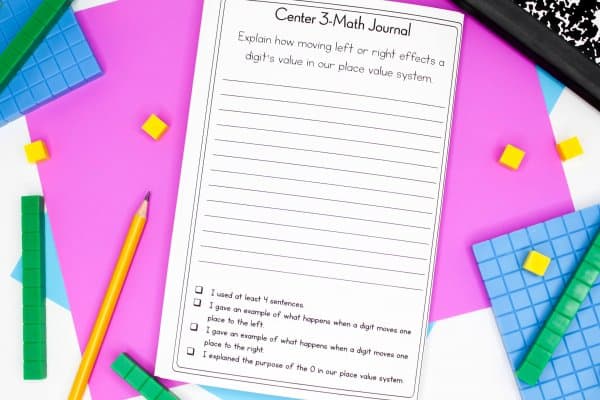 Center 3-Math Journal
Explain how moving left or right effects a
digit's value in our place value system.
I used at least 4 sentences.
I gave an example of what happens when a digit moves one
place to the left.
I gave an example of what happens when a digit moves one
place to the right.
I explained the purpose of the 0 in our place value system.